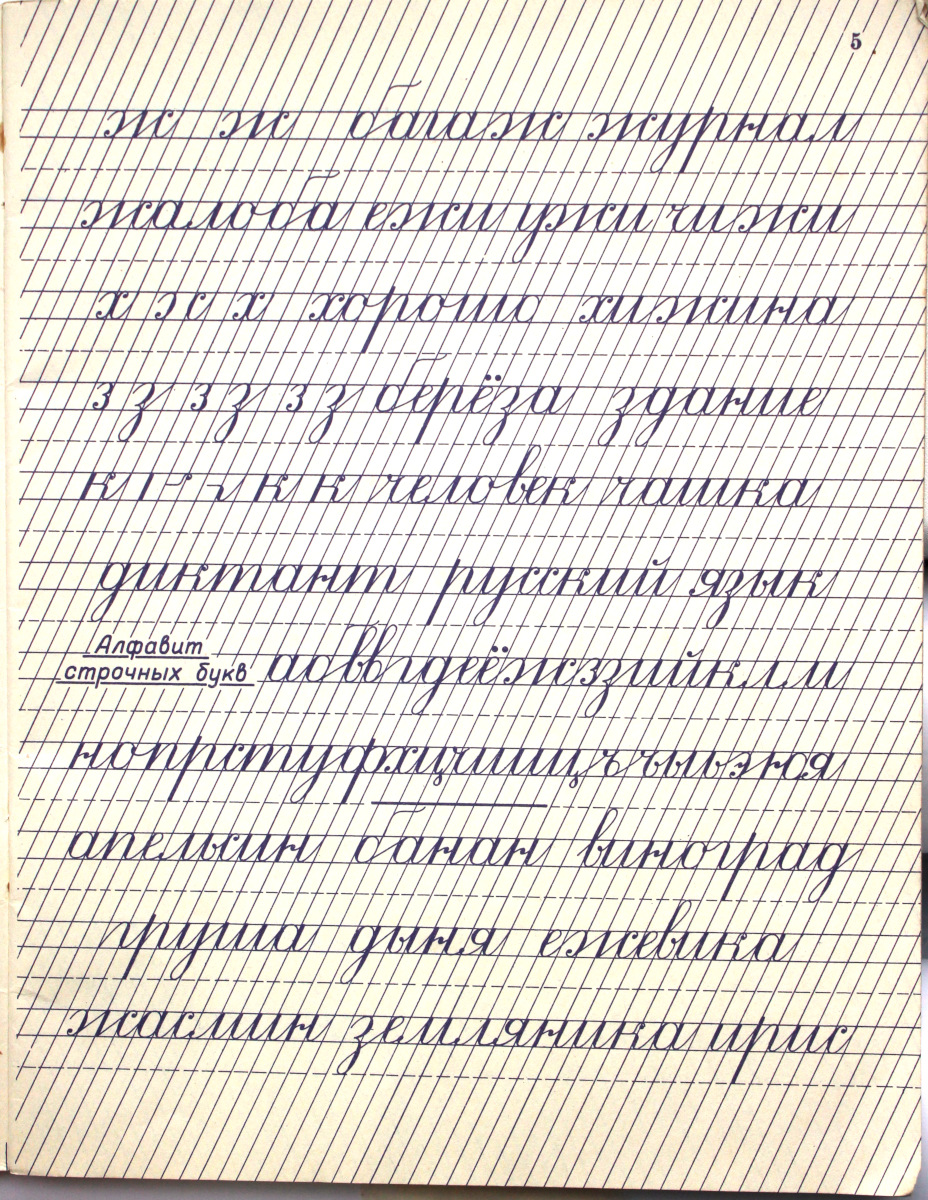 5
ж ж багаж журнал
жалоба ежи ужи чижи
х ж х хорошо хижина
з з з з з з берёза здание
к к к человек чашка
диктант русский язык
Алфавит
строчных букв
абвгдеёжзийклм
нопрстуфхцчшщъыьэюя
апельсин банан виноград
груша дыня ежевика
жасмин земляника ирис